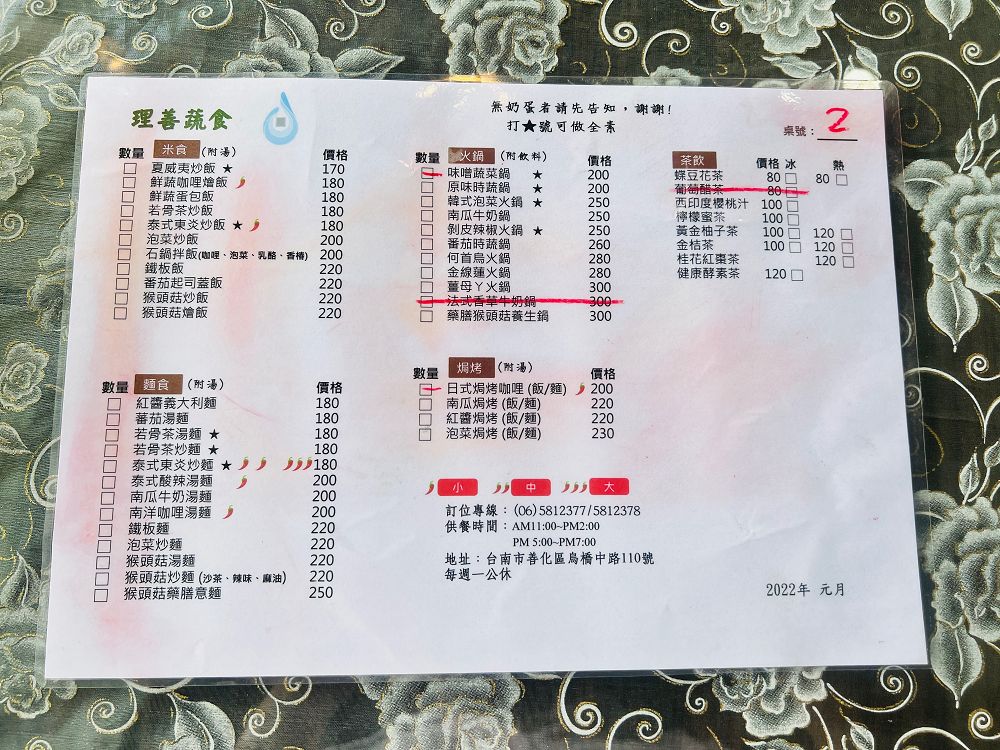 理善蔬食
無奶蛋者請先告知，謝謝!
打★號可做全素
桌號： 2
數量 米食 (附湯) 價格
夏威夷炒飯 ★ 170
鮮蔬咖哩燴飯 180
鮮蔬蛋包飯 180
若骨茶炒飯 180
泰式東炎炒飯 ★ 180
泡菜炒飯 200
石鍋拌飯(咖哩、泡菜、乳酪、香椿) 200
鐵板飯 220
番茄起司蓋飯 220
猴頭菇炒飯 220
猴頭菇燴飯 220
數量 麵食 (附湯) 價格
紅醬義大利麵 180
蕃茄湯麵 180
若骨茶湯麵 ★ 180
若骨茶炒麵 ★ 180
泰式東炎炒麵 ★ 180
泰式酸辣湯麵 200
南瓜牛奶湯麵 200
南洋咖哩湯麵 200
鐵板麵 220
泡菜炒麵 220
猴頭菇湯麵 220
猴頭菇炒麵 (沙茶、辣味、麻油) 220
猴頭菇藥膳意麵 250
數量 火鍋 (附飲料) 價格
味噌蔬菜鍋 ★ 200
原味時蔬鍋 ★ 200
韓式泡菜火鍋 ★ 250
南瓜牛奶鍋 250
剝皮辣椒火鍋 ★ 250
番茄時蔬鍋 260
何首烏火鍋 280
金線蓮火鍋 280
薑母ㄚ火鍋 300
法式香草牛奶鍋 300
藥膳猴頭菇養生鍋 300
數量 焗烤 (附湯) 價格
日式焗烤咖哩 (飯/麵) 200
南瓜焗烤 (飯/麵) 220
紅醬焗烤 (飯/麵) 220
泡菜焗烤 (飯/麵) 230
小 中 大
訂位專線：(06)5812377/5812378
供餐時間：AM11:00~PM2:00
PM 5:00~PM7:00
地址：台南市善化區烏橋中路110號
每週一公休
茶飲 價格 冰 熱
蝶豆花茶 80 80
葡萄醋茶 80
西印度櫻桃汁 100
檸檬蜜茶 100
黃金柚子茶 100 120
金桔茶 100 120
桂花紅棗茶 120
健康酵素茶 120
2022年 元月